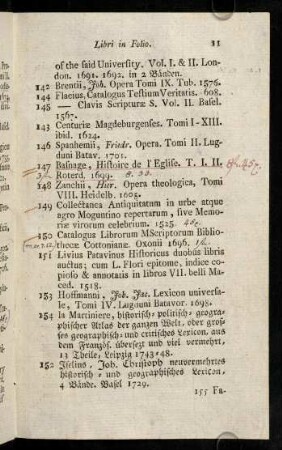 Libri in Folio. 11
of the said University. Vol. I. & II. London. 1691. 1692. in 2 Bänden.
142 Brentii, Joh. Opera Tomi IX. Tub. 1576.
144 Flacius, Catalogus Testium Veritatis. 608.
145 — Clavis Scripturæ S. Vol. II. Basel.
1567.
143 Centuriæ Magdeburgenses. Tomi I-XIII.
ibid. 1624.
146 Spanhemii, Friedr. Opera. Tomi II. Lug-
duni Batav. 1701.
147 Basnage, Histoire de l'Eglise. T. I. II.
Roterd. 1699.
148 Zanchii, Hier. Opera theologica, Tomi
VIII. Heidelb. 1605.
149 Collectanea Antiquitatum in urbe atque
agro Moguntino repertarum, sive Memo-
riæ virorum celebrium. 1525.
150 Catalogus Librorum MScriptorum Biblio-
thecæ Cottonianæ. Oxonii 1696.
151 Livius Patavinus Historicus duobus libris
auctus; cum L. Flori epitome, indice co-
pioso & annotatis in libros VII. belli Ma-
ced. 1518.
153 Hoffmanni, Joh. Jac. Lexicon universa-
le, Tomi IV. Lugduni Batavor. 1698.
154 la Martiniere, historisch- politisch- geogra-
phischer Atlas der ganzen Welt, oder gros-
ses geographisch- und critisches Lexicon, aus
dem Französ. übersezt und viel vermehrt,
13 Theile, Leipzig 1743-48.
152 Iselins, Joh. Christoph neuvermehrtes
historisch- und geographisches Lexicon,
4 Bände. Basel 1729.
155 Fa-